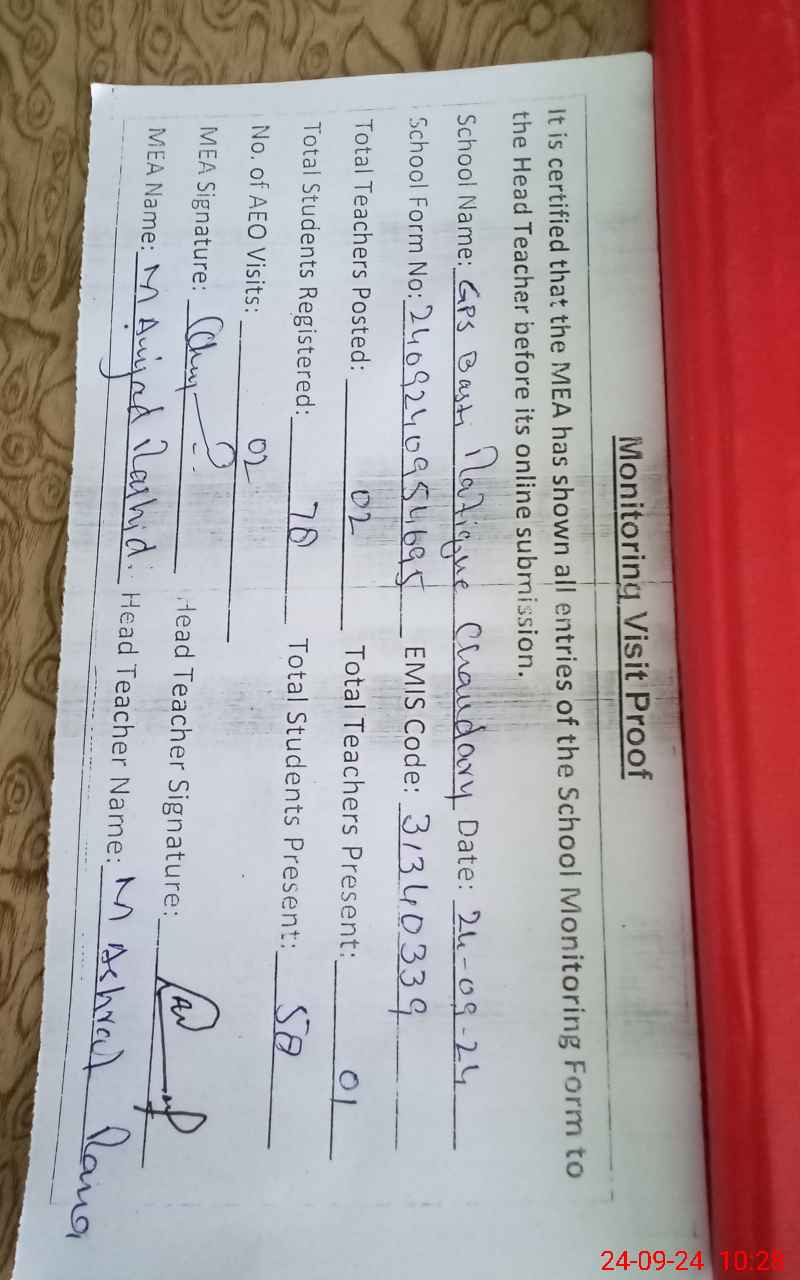 Monitoring Visit Proof
It is certified that the MEA has shown all entries of the School Monitoring Form to
the Head Teacher before its online submission.
School Name: GPS Basti Rafique Chaudary Date: 24-09-24
School Form No: 2409240954695 EMIS Code: 31340339
Total Teachers Posted: 02 Total Teachers Present: 01
Total Students Registered: 78 Total Students Present: 58
No. of AEO Visits: 02
MEA Signature: Head Teacher Signature:
MEA Name: M Amjad Rashid. Head Teacher Name: M Ashraf Rana
24-09-24 10:28